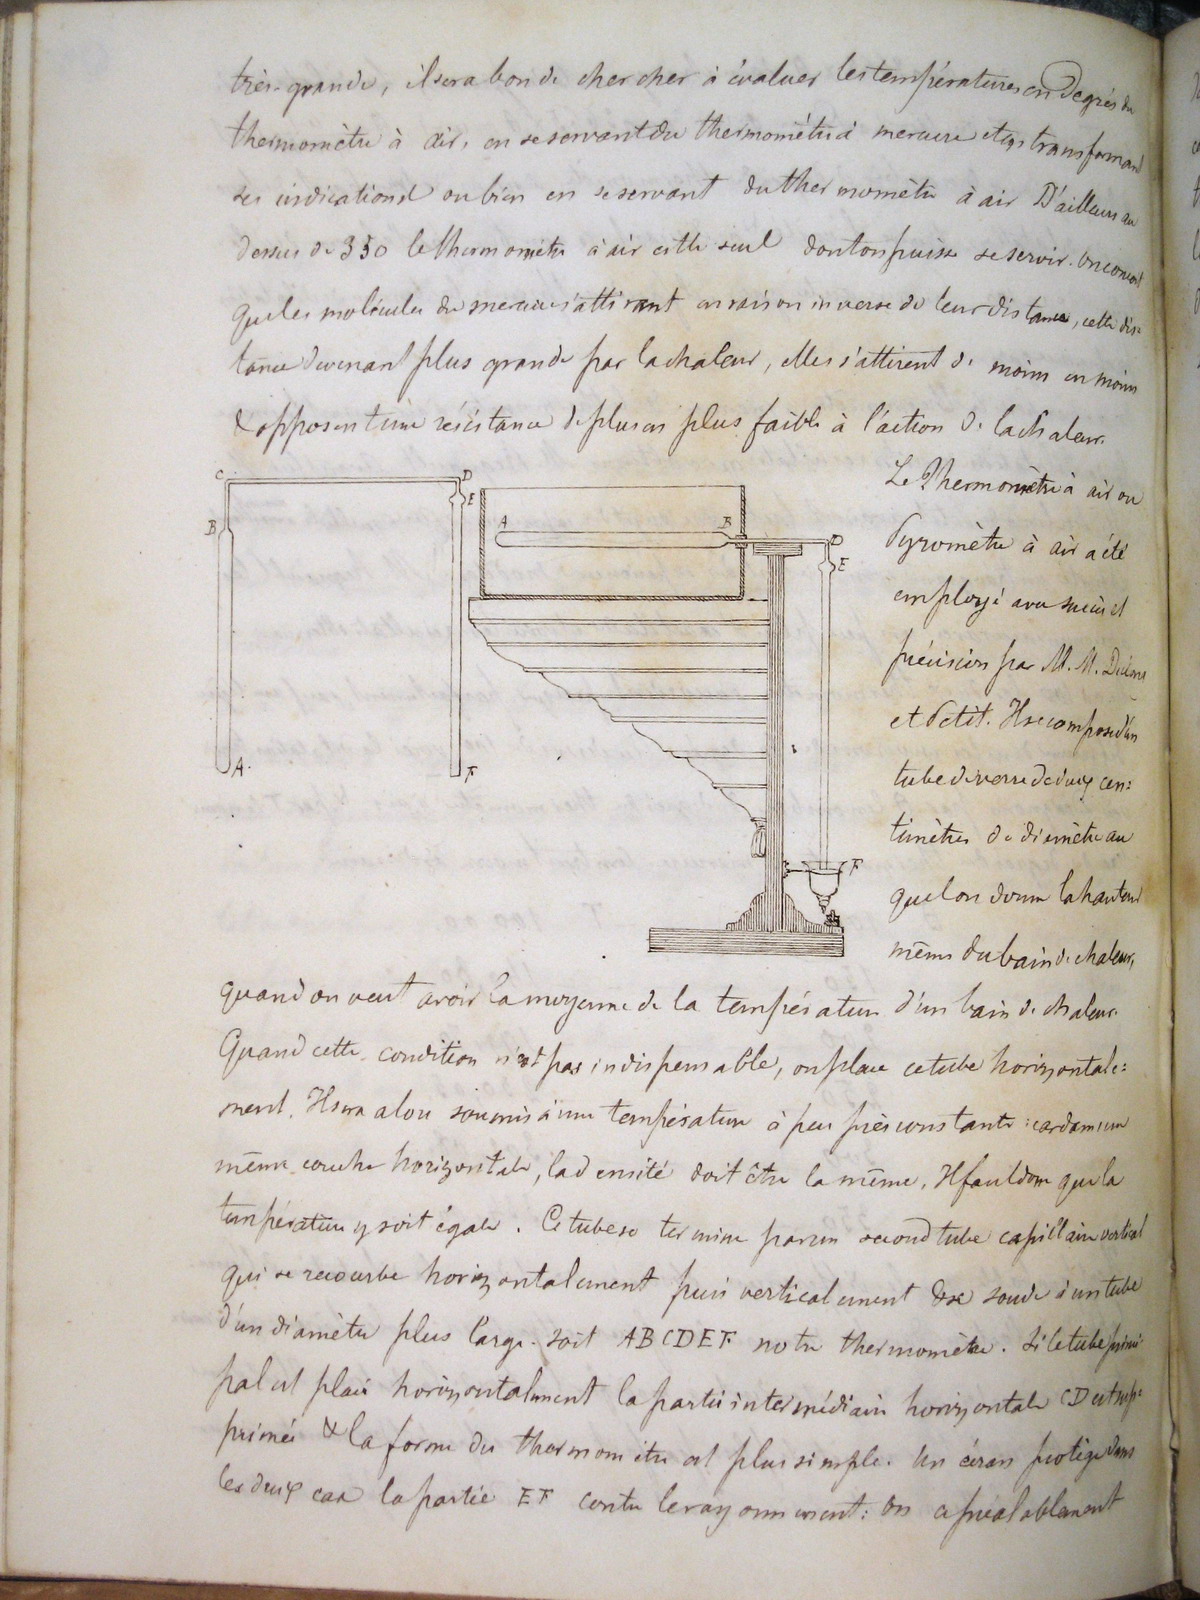 très-grande, il sera bon de chercher à évaluer les températures en degrés du
thermomètre à air, en se servant du thermomètre à mercure et en transformant
ses indications ou bien en se servant du thermomètre à air D'ailleurs au
dessus de 350 le thermomètre à air est le seul dont on puisse se servir. On conçoit
que les molécules du mercure s'attirant en raison inverse de leur distance, cette dis-
tance devenant plus grande par la chaleur, elles s'attirent de moins en moins
& opposent une résistance de plus en plus faible à l'action de la chaleur.
Le Thermomètre à air ou
Pyromètre à air a été
employé avec succès et
précision par M.M. Dulong
et Petit. Il se compose d'un
tube de verre de deux cen:
timètres de diamètre au
quel on donne la hauteur
même du bain de chaleur,
C D
E
B
A. F
A B
D
E
F
quand on veut avoir la moyenne de la température d'un bain de chaleur.
Quand cette condition n'est pas indispensable, on place ce tube horizontale:
ment. Il sera alors soumis à une température à peu près constante: car dans une
même couche horizontale, la densité doit être la même, Il faut donc que la
température y soit égale. Ce tube se termine par un second tube capillaire vertical
qui se recourbe horizontalement puis verticalement & se soude à un tube
d'un diamètre plus large. Soit ABCDEF notre thermomètre. Si le tube princi-
pal est placé horizontalement la partie intermédiaire horizontale CD est sup:
primée & la forme du thermomètre est plus simple. Un écran protège dans
les deux cas la partie EF contre le rayonnement: On a préalablement